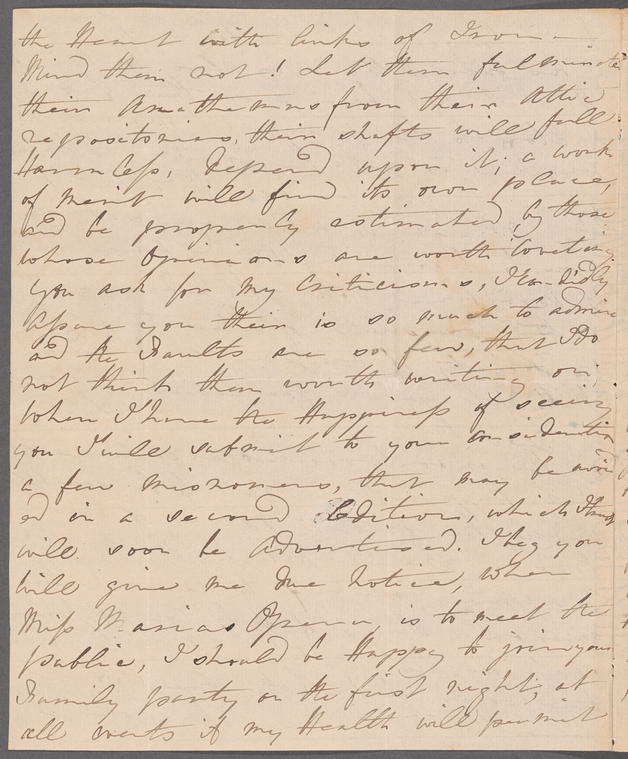 the Heart with links of Iron —
Mind them not! Let them fulminate
their Anathemas from their Attic
repositories, their shafts will fall
Harmless, Depend upon it; a work
of merit will find its own place,
and be properly estimated, by those
whose Opinions are worth Coveting
you ask for my Criticisms, I Candidly
assure you their is so much to admire
and the Faults are so few, that I do
not think them worth writing on,
When I have the Happiness of seeing
you I will submit to your Consideration
a few misnomers, that may be avoid
ed in a second Edition, which I think
will soon be Advertised. I beg you
will give me due Notice, when
Miss Marias Opera, is to meet the
public, I should be Happy to join your
Family party on the first night, at
all events if my Health will permit